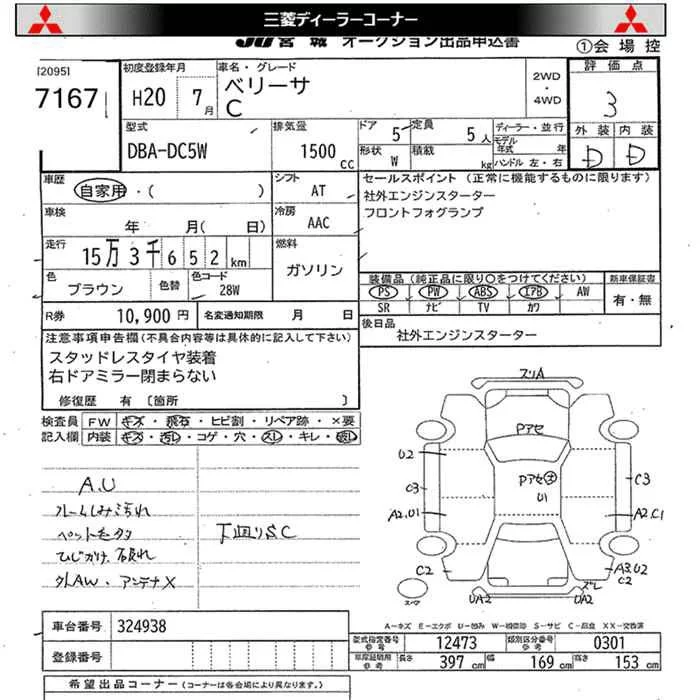 三菱ディーラーコーナー
JU 宮城 オークション出品申込書
①会場控
[2095]
7167
初度登録年月
H20 7月
車名・グレード
ベリーサ
C
2WD
・
4WD
評価点
3
外装 内装
D D
型式
DBA-DC5W
排気量
1500 cc
ドア 5
定員 5人
形状 W
積載 kg
ディーラー・並行
モデル年式 年
ハンドル 左・右
車歴
自家用・( )
シフト
AT
車検
年 月( 日)
冷房
AAC
走行
15万3千652km
燃料
ガソリン
色
ブラウン
色替
色コード
28W
R券
10,900円
名変通知期限 月 日
セールスポイント (正常に機能するものに限ります)
社外エンジンスターター
フロントフォグランプ
装備品 (純正品に限り〇をつけてください)
新車保証書
PS PW ABS エアB AW
SR ナビ TV カワ
有・無
後日品
社外エンジンスターター
注意事項申告欄(不具合内容等は具体的に記入して下さい)
スタッドレスタイヤ装着
右ドアミラー閉まらない
修復歴 有 [箇所 ]
検査員
記入欄
FW キズ・飛石・ヒビ割・リペア跡・×要
内装 キズ・汚レ・コゲ・穴・スレ・キレ・破レ
A.U
ルームしみ汚れ
ペット毛
ひじかけ破れ
外AW、アンテナX
下回りS.C
スリA
Pアセ
Pアセ大
U1
U2
C3
A2.U1
C3
A2.C1
C2
A3.U2
C2
ズレ
UA2
UA2
スペア
A-キズ E-エクボ U-凹み W-補修跡 S-サビ C-腐食 XX-交換済
車台番号
324938
登録番号
型式指定番号
参考
12473
類別区分番号
参考
0301
車庫証明用
参考
長さ 397 cm
幅 169 cm
高さ 153 cm
希望出品コーナー (コーナーは各会場により異なります。)